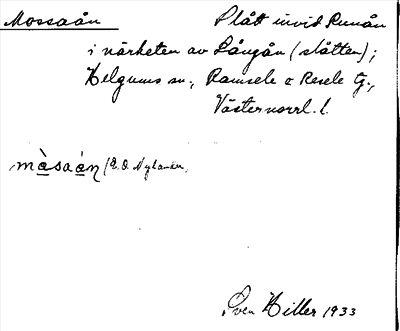 Mossaån Slått invid Runån
i närheten av Långån (slåtten);
Helgums sn., Ramsele o Resele tg.,
Västernorrl. l.
mɑ̀saán (E.O. Nylander,
Sven Hiller 1933